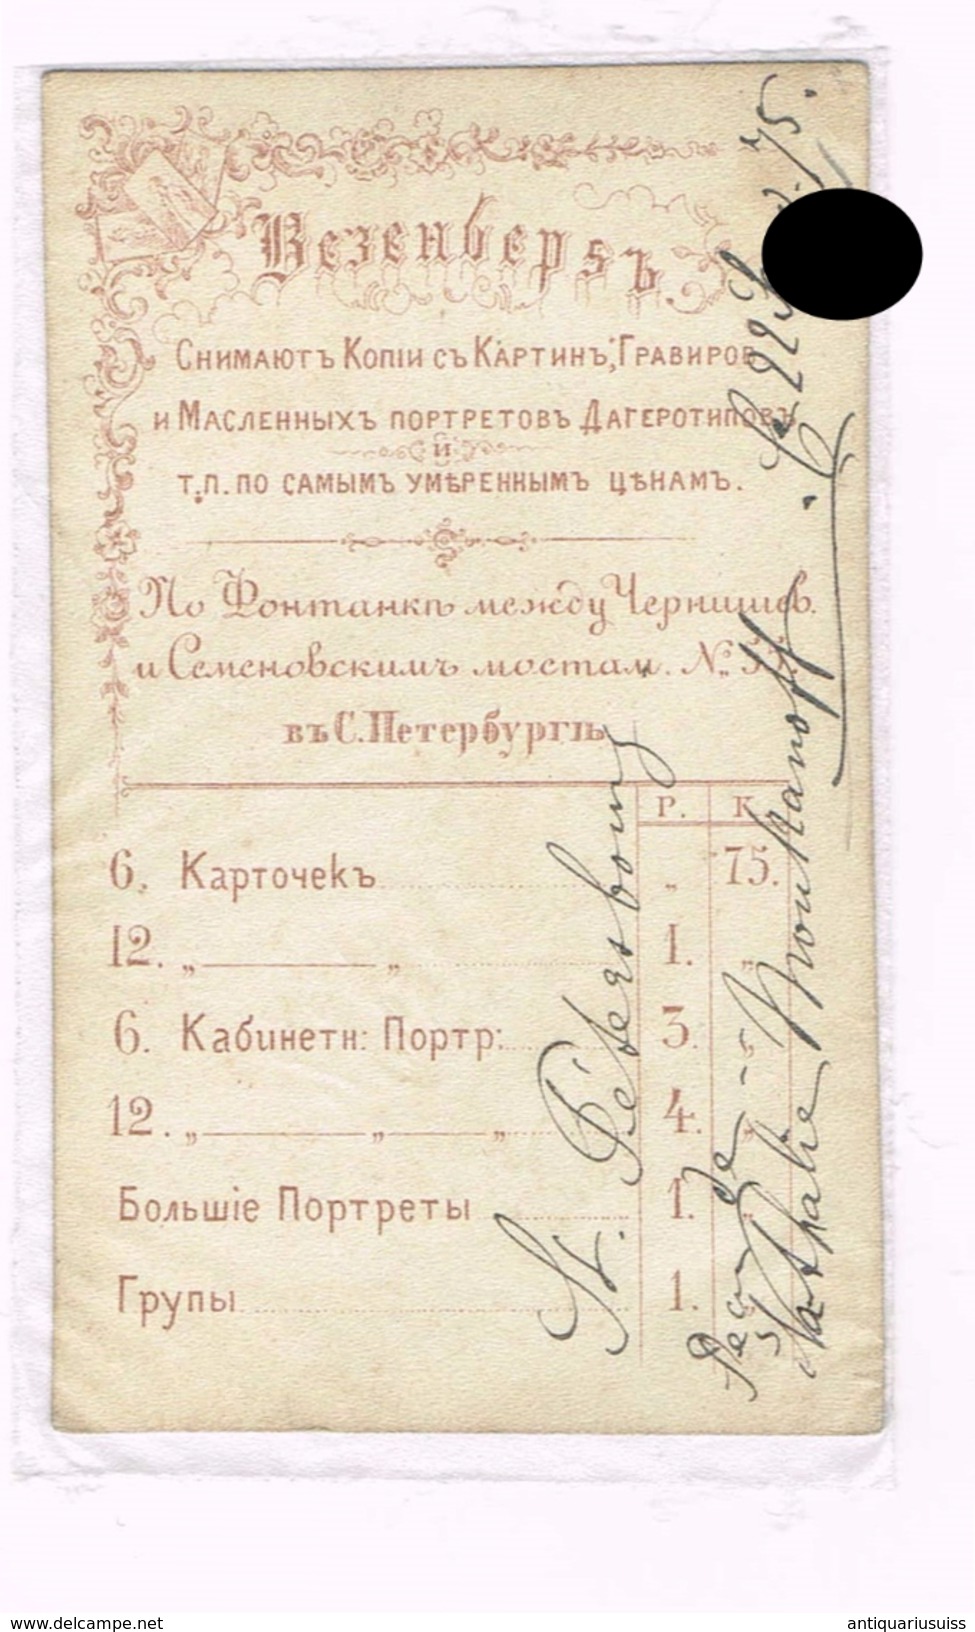 Везенбергъ
Снимаютъ Копіи съ Картинъ, Гравиров
и Масленныхъ портретовъ Дагеротиповъ
и
т.п. по самымъ умѣреннымъ цѣнамъ.
По Фонтанкѣ между Чернышев.
и Семеновскимъ мостам. №
въ С. Петербургѣ
Р. К.
6. Карточекъ „ 75.
12. „ „ 1. „
6. Кабинетн: Портр: 3. „
12. „ „ „ 4. „
Большіе Портреты 1. „
Групы 1. „
St. Pétersbourg
de
Nathalie Mouhanoff
75.
www.delcampe.net
antiquariusuiss